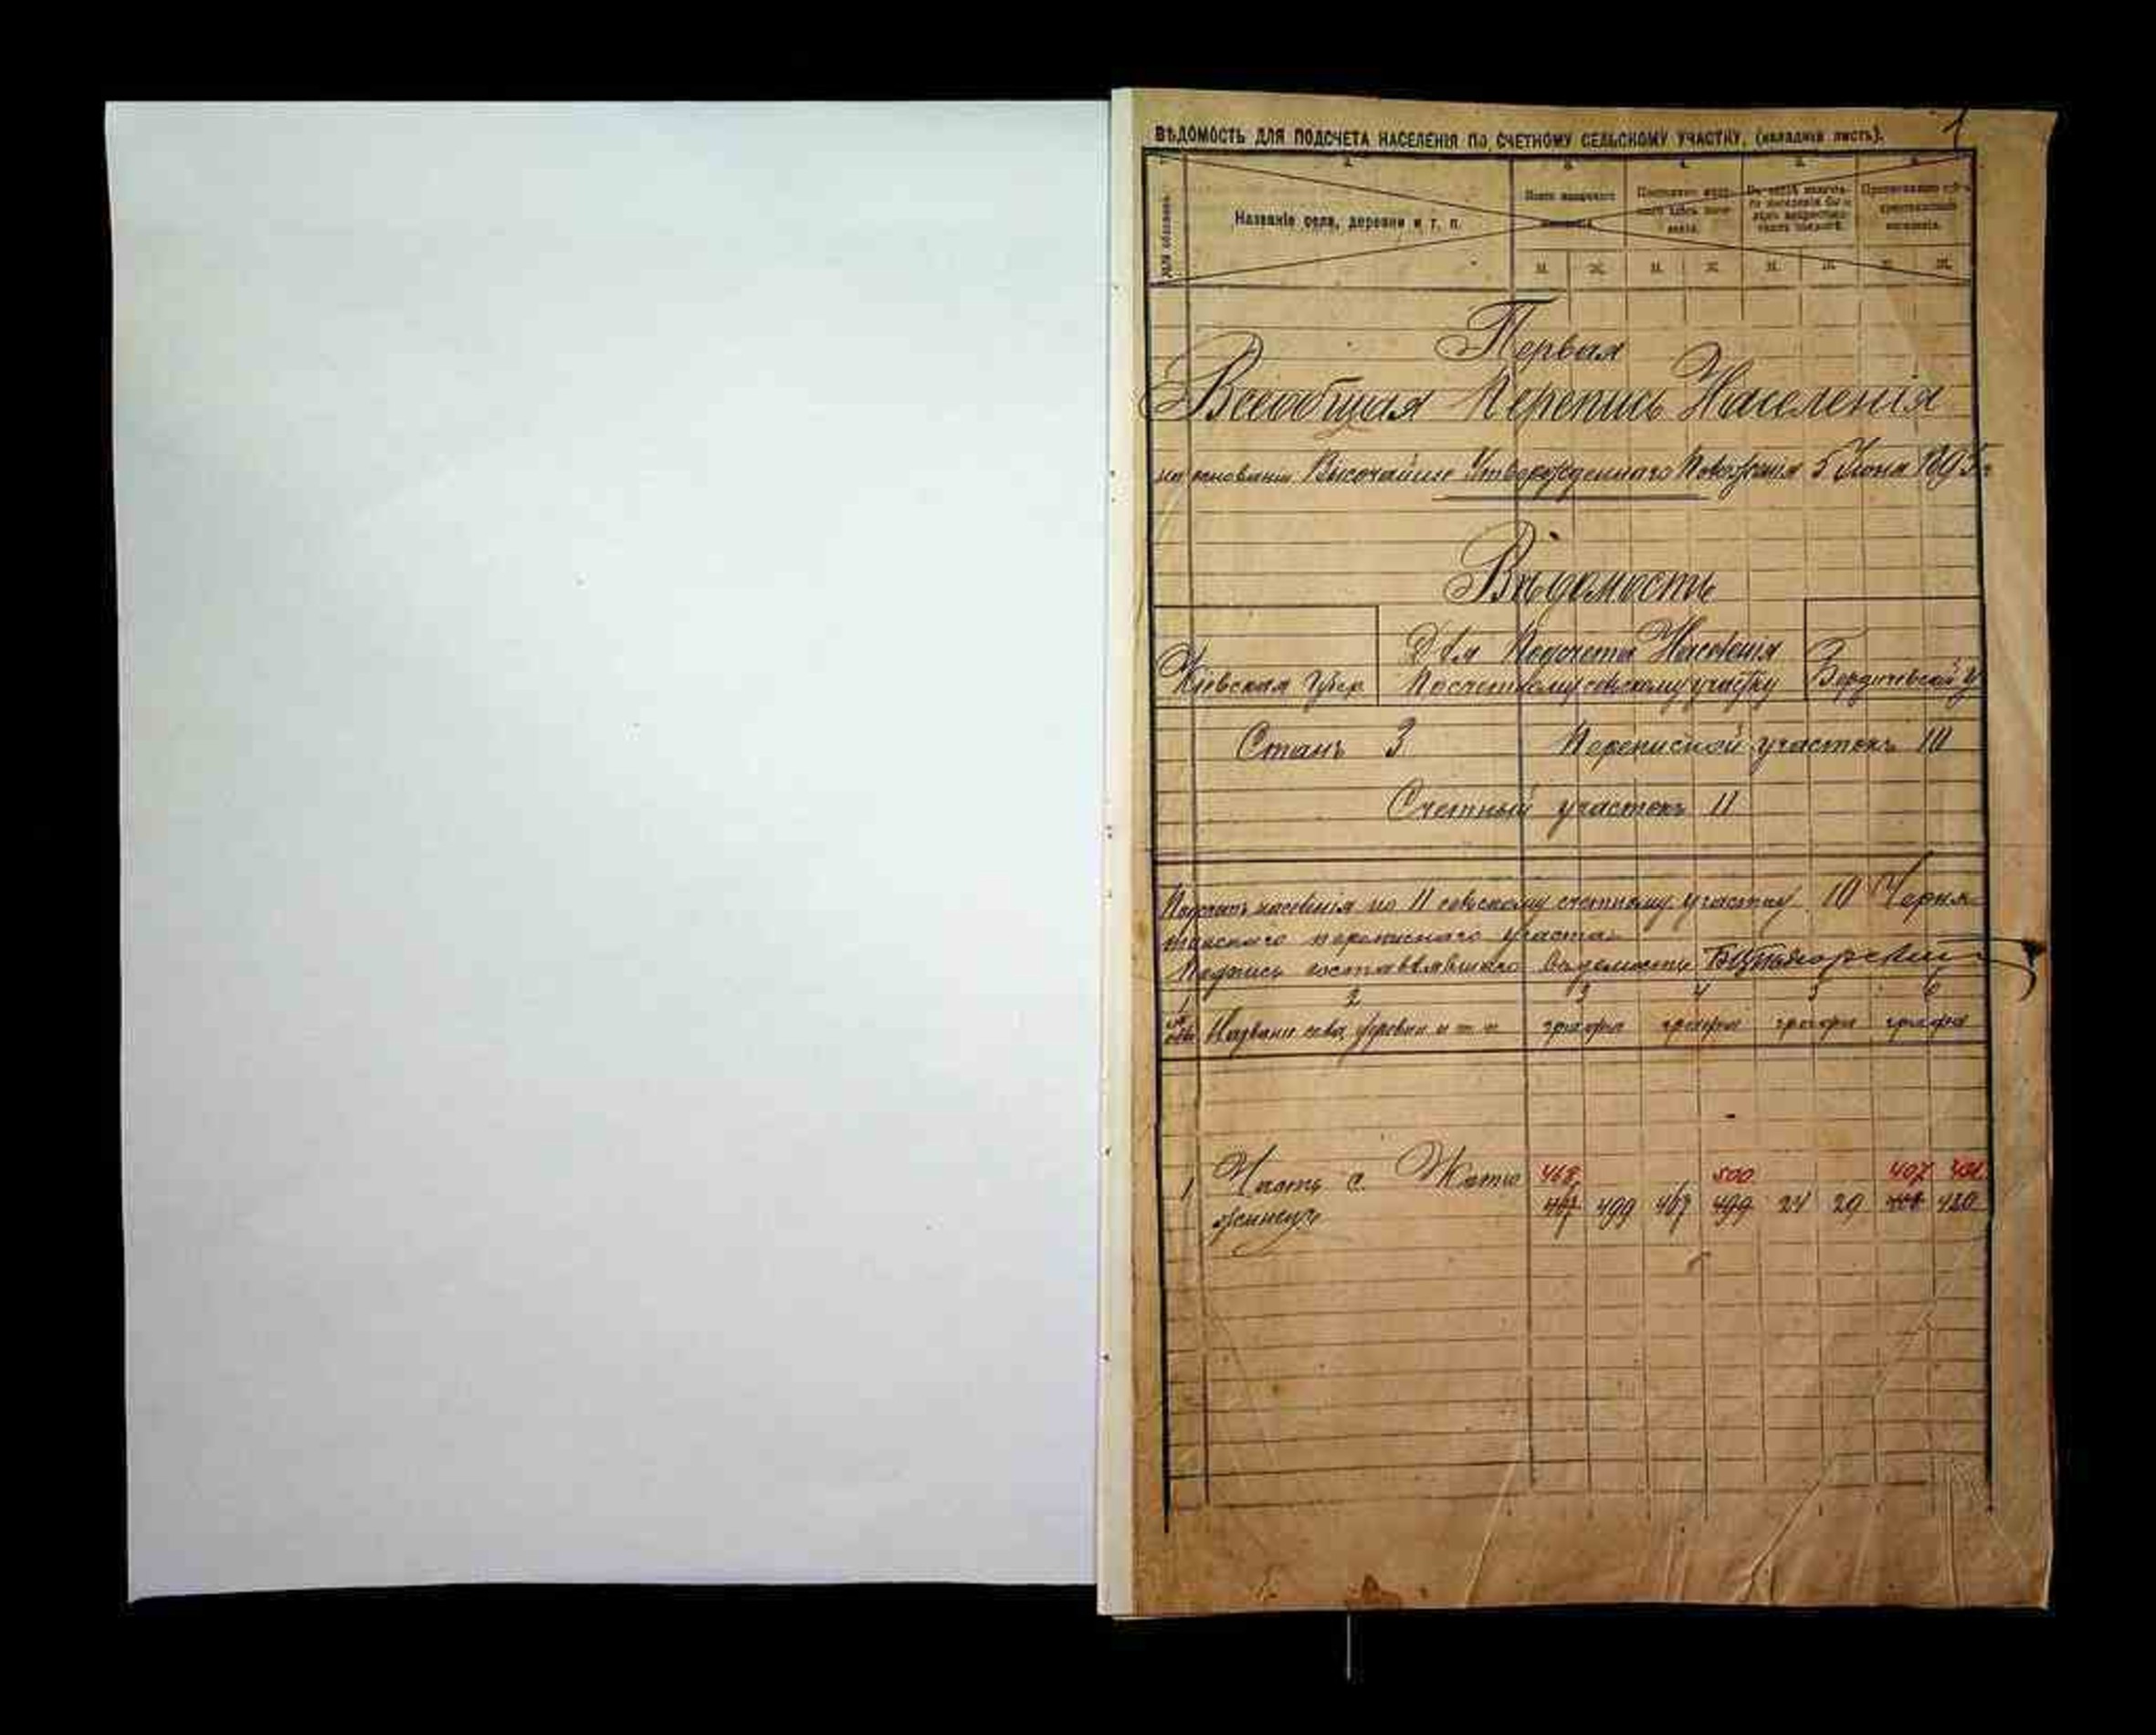 1
ВѢДОМОСТЬ ДЛЯ ПОДСЧЕТА НАСЕЛЕНІЯ ПО СЧЕТНОМУ СЕЛЬСКОМУ УЧАСТКУ, (вкладной листъ).
Названіе села, деревни и т. п.
М. Ж. М. Ж. М. Ж. М. Ж.
Первая
Всеобщая Перепись Населенія
на основаніи Высочайше Утвержденнаго Положенія 5 Іюня 1895 г
Вѣдомость
Для Подсчета Населенія
Кіевская Губер По счетному сельскому участку Бердичевскій у
Станъ 3 Переписной участокъ 10
Счетный участокъ 11
Подсчетъ населенія по 11 сельскому счетному участку 10 Черня-
тинского переписнаго участка
Подпись составлявшаго вѣдомость
1 2 3 4 5 6
Названіе села, деревни и т. п. графа графа графа графа
468 500 407
1 Часть с. Жито 467 499 467 499 24 29 420